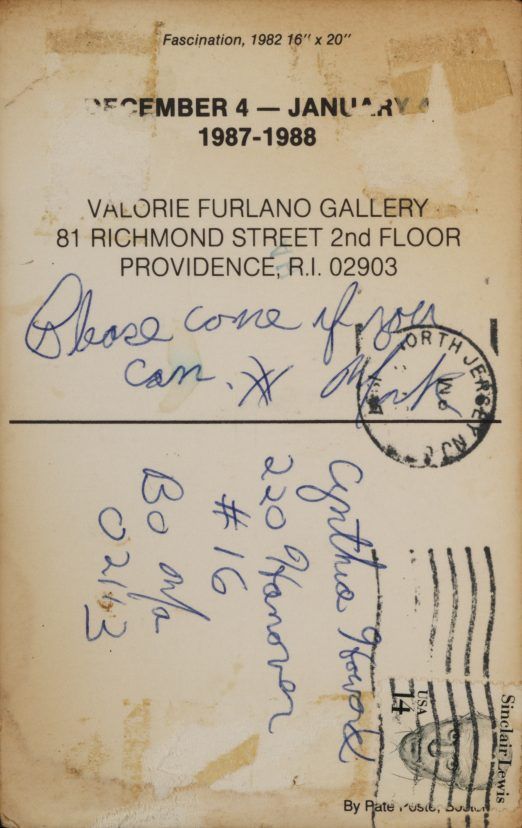 Fascination, 1982 16" x 20"
DECEMBER 4 — JANUARY
1987-1988
VALORIE FURLANO GALLERY
81 RICHMOND STREET 2nd FLOOR
PROVIDENCE, R.I. 02903
Please come if you
can. X Mark
NORTH JERSEY NJ
PM
Cynthia Howard
220 Hanover
#16
Bo Ma
02113
Sinclair Lewis
USA
14
By Pate